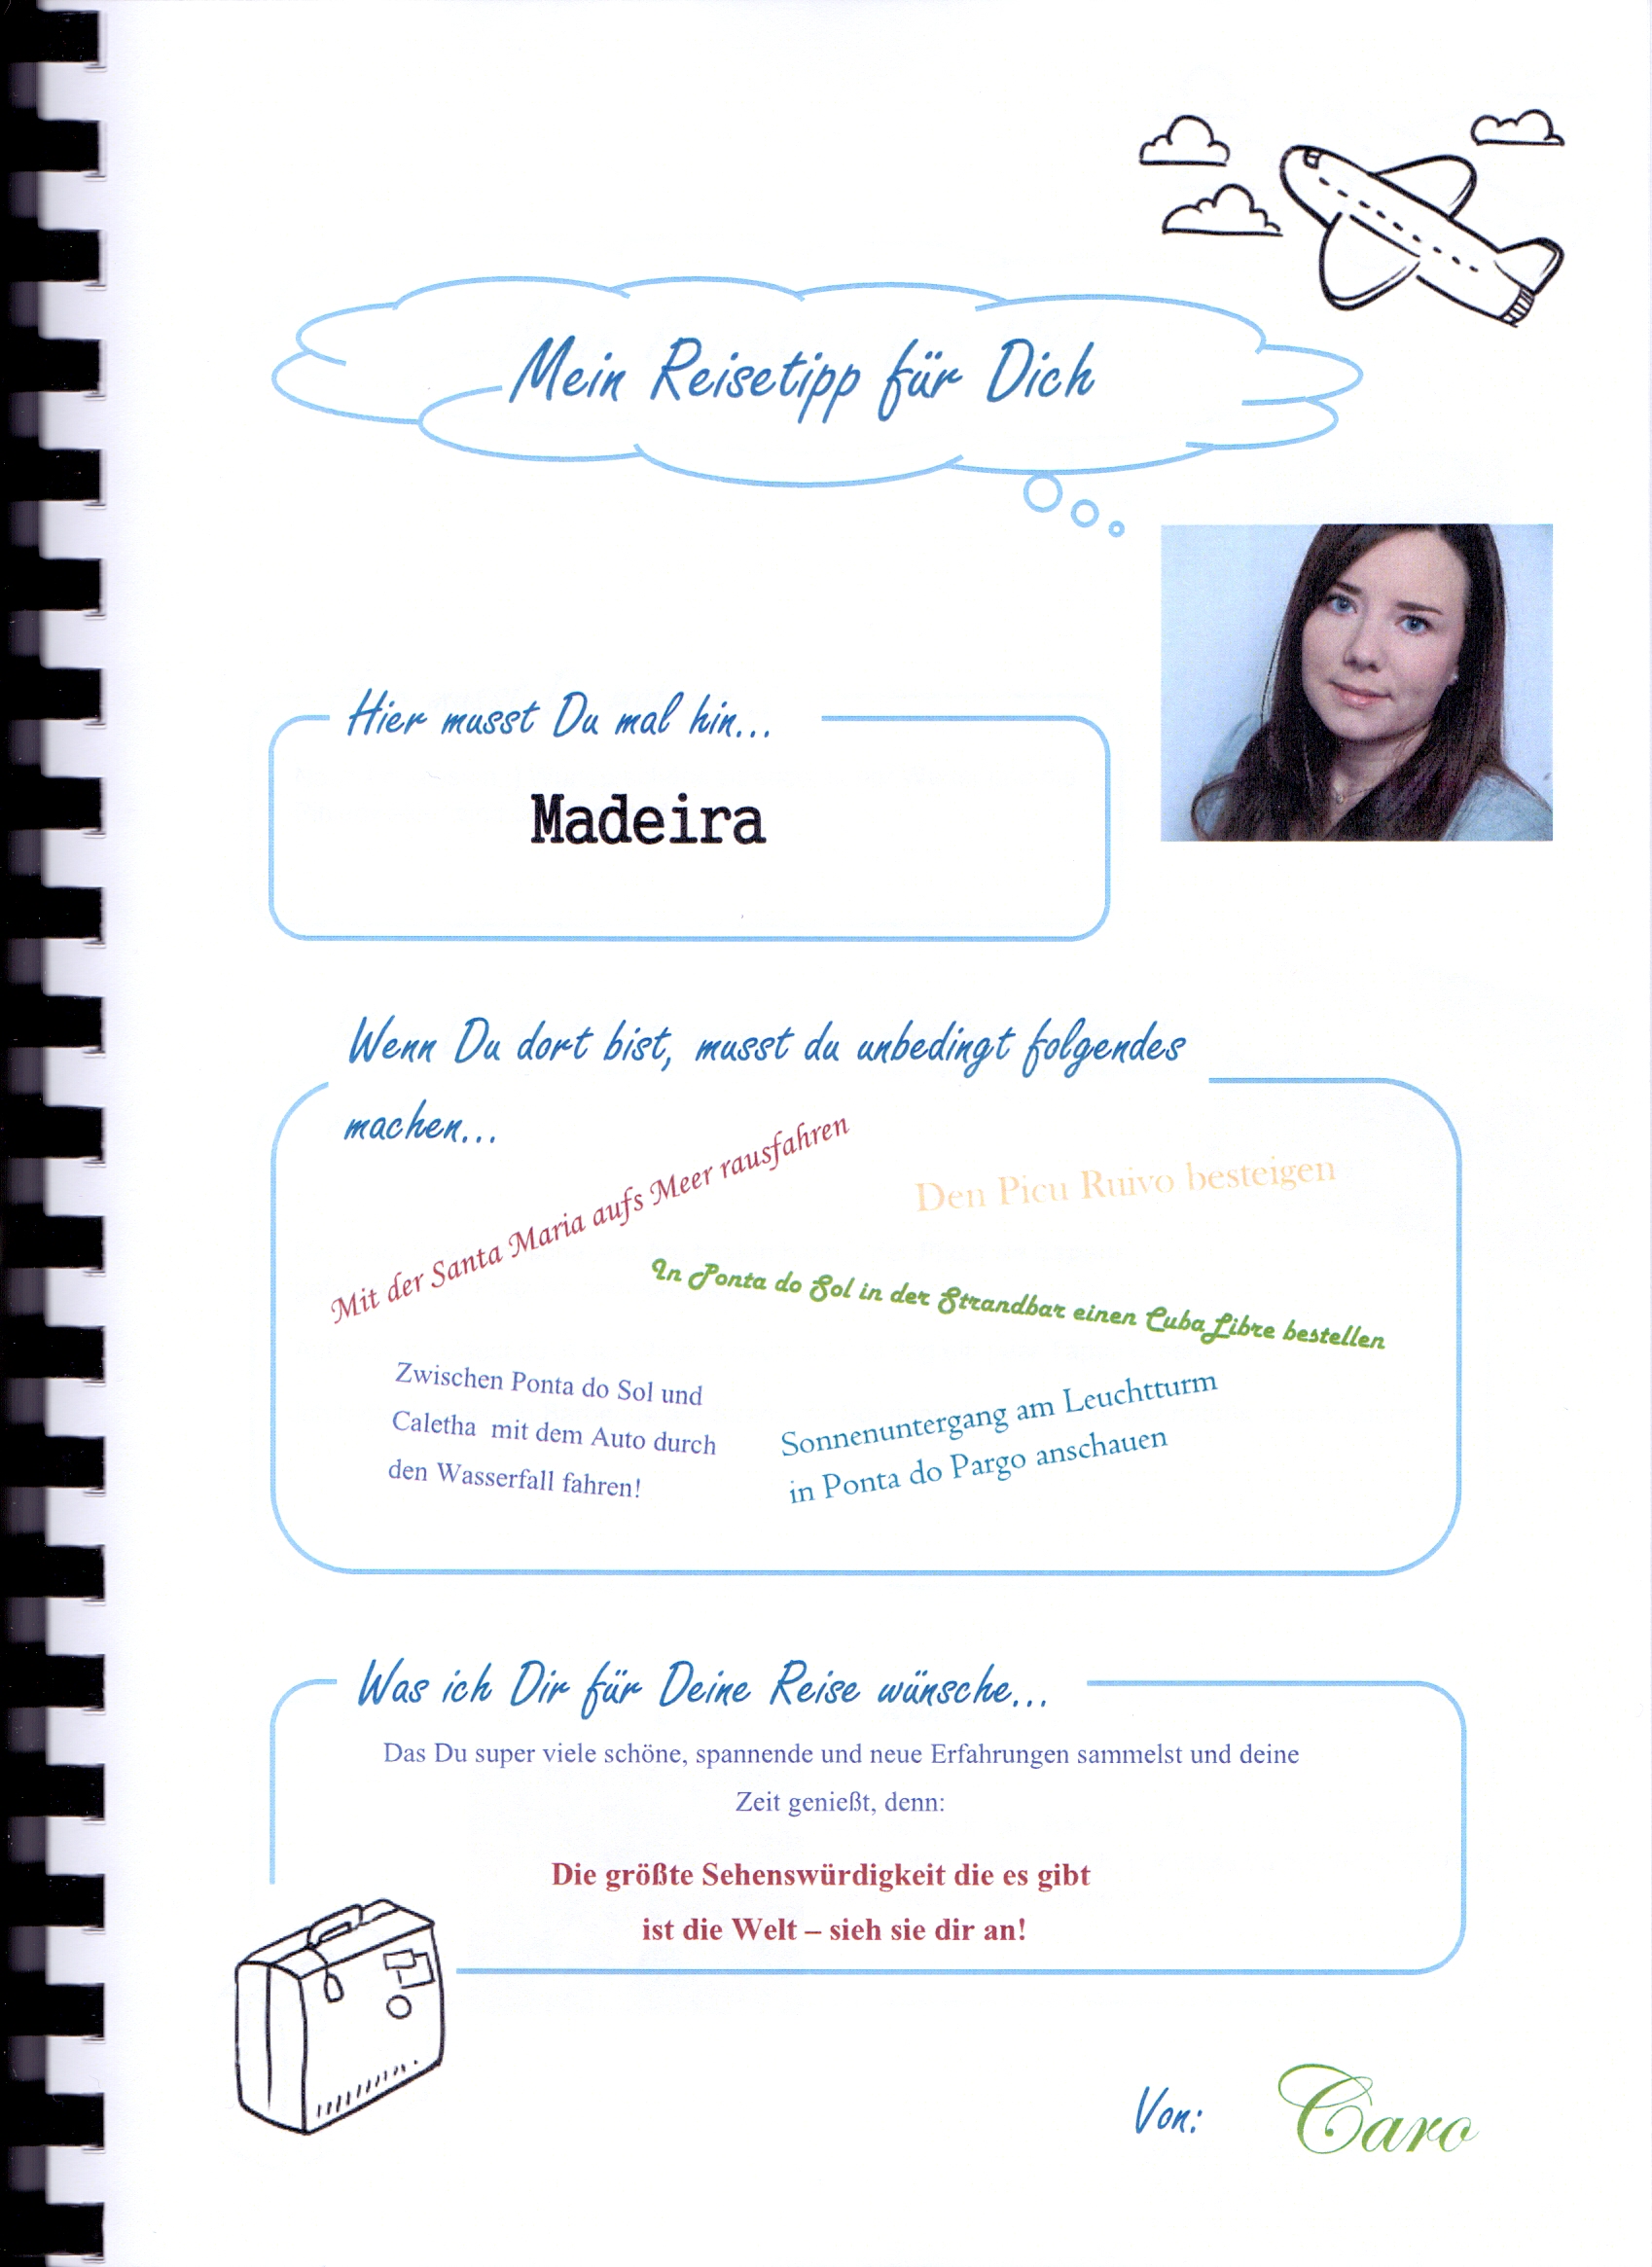 Mein Reisetipp für Dich
Hier musst Du mal hin...
Madeira
Wenn Du dort bist, musst du unbedingt folgendes
machen...
Mit der Santa Maria aufs Meer rausfahren
Den Picu Ruivo besteigen
In Ponta do Sol in der Strandbar einen Cuba Libre bestellen
Zwischen Ponta do Sol und
Caletha mit dem Auto durch
den Wasserfall fahren!
Sonnenuntergang am Leuchtturm
in Ponta do Pargo anschauen
Was ich Dir für Deine Reise wünsche...
Das Du super viele schöne, spannende und neue Erfahrungen sammelst und deine
Zeit genießt, denn:
Die größte Sehenswürdigkeit die es gibt
ist die Welt – sieh sie dir an!
Von: Caro